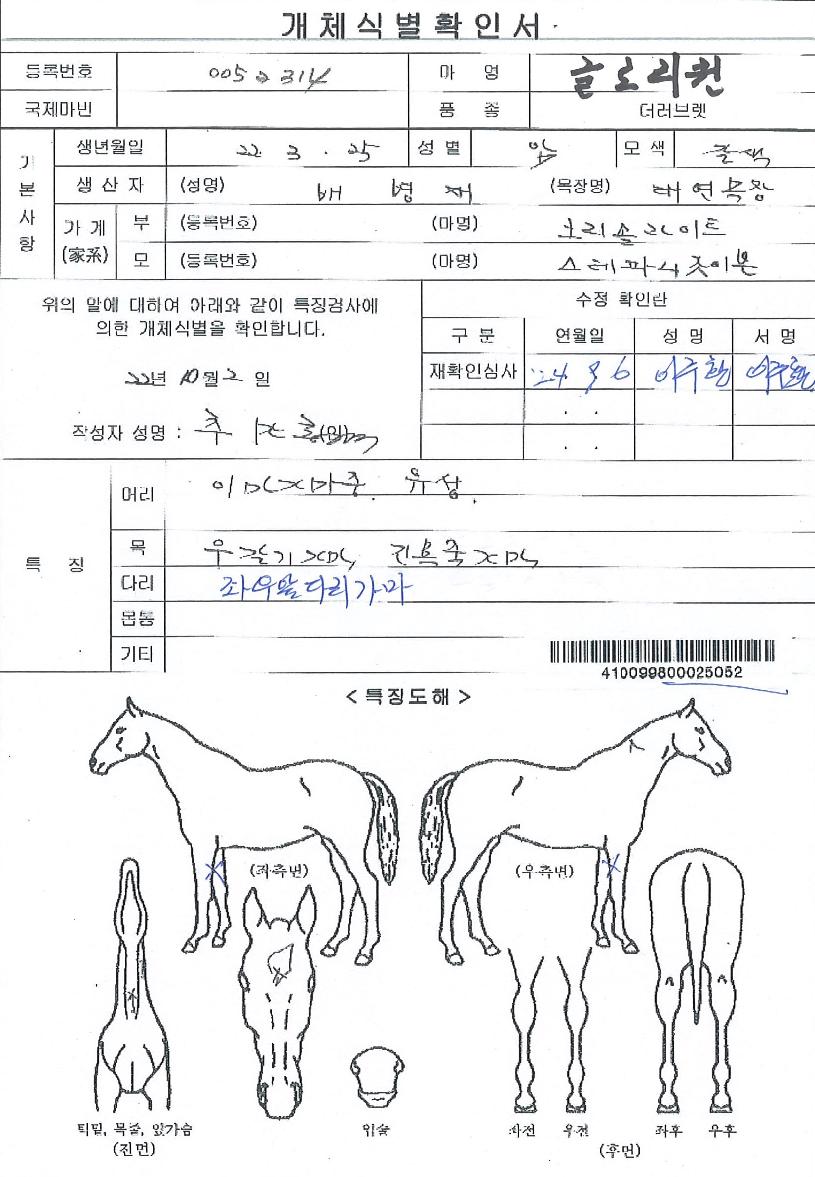 개체식별확인서
등록번호 0052314 마 명 글로리퀸
국제마번 품 종 더러브렛
기본사항
생년월일 22 3 . 25 성 별 암 모 색 갈색
생 산 자 (성명) 배 병 재 (목장명) 태연목장
가 계 (家系) 부 (등록번호) (마명)
모 (등록번호) (마명)
위의 말에 대하여 아래와 같이 특징검사에
의한 개체식별을 확인합니다.
22년 10월 2 일
작성자 성명 :
수정 확인란
구 분 연월일 성 명 서 명
재확인심사 '24 6
특 징
머리 유성
목
다리 좌우앞다리가마
몸통
기타
410099800025052
< 특징도해 >
(좌측면) (우측면)
턱밑, 목줄, 앞가슴 입술 좌전 우전 좌후 우후
(전면) (후면)